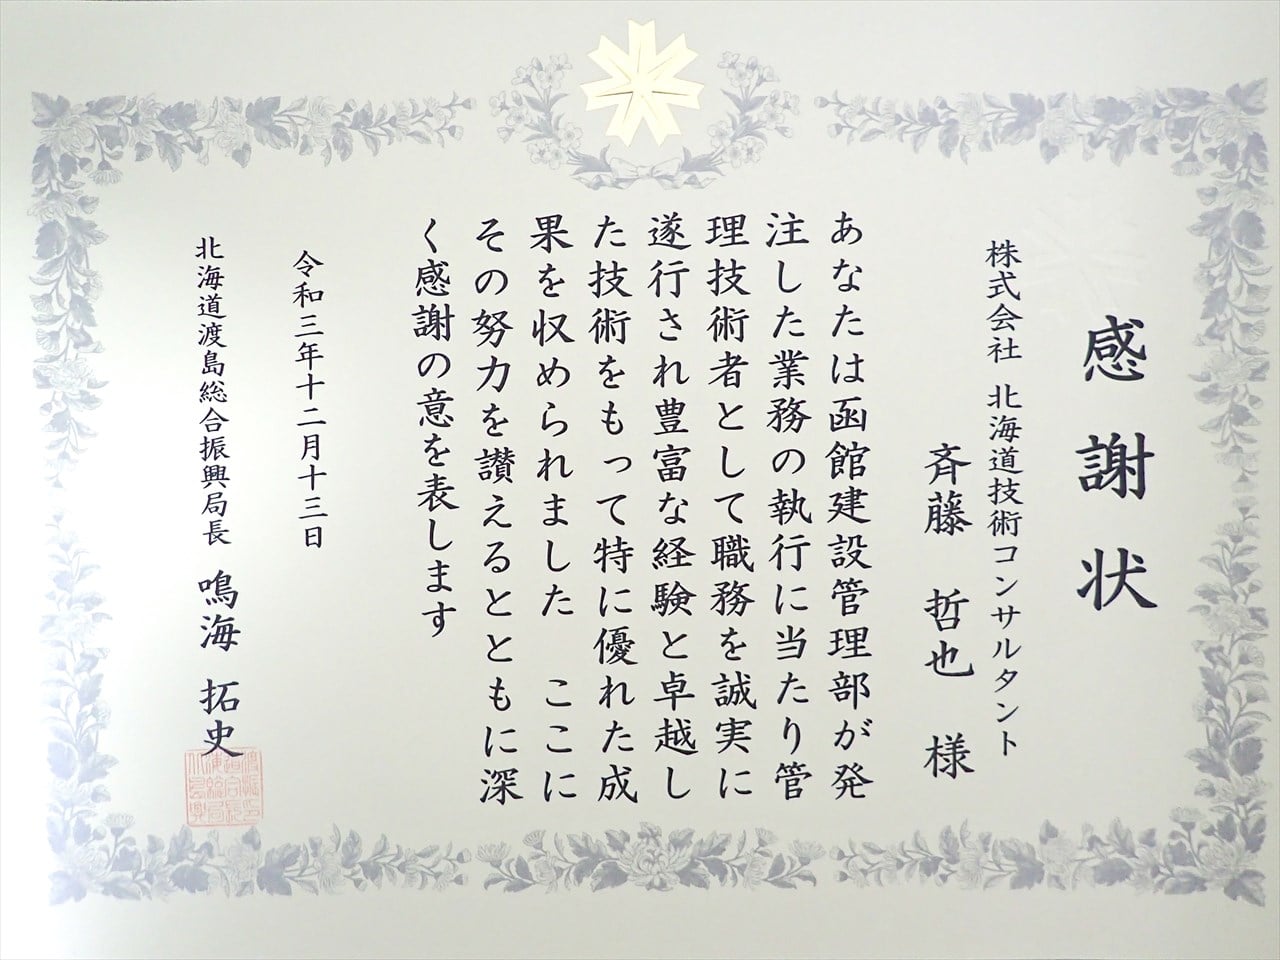 感謝状
株式会社 北海道技術コンサルタント
斉藤 哲也 様
あなたは函館建設管理部が発
注した業務の執行に当たり管
理技術者として職務を誠実に
遂行され豊富な経験と卓越し
た技術をもって特に優れた成
果を収められました ここに
その努力を讃えるとともに深
く感謝の意を表します
令和三年十二月十三日
北海道渡島総合振興局長 鳴海 拓史